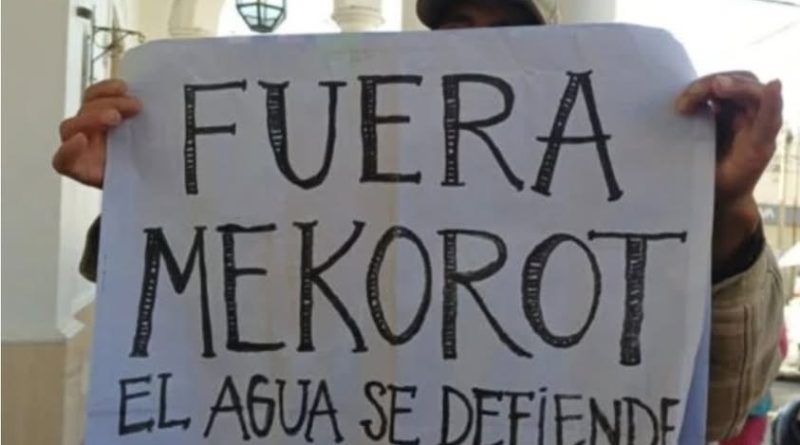 FUERA
MEKOROT
EL AGUA SE DEFiENDE